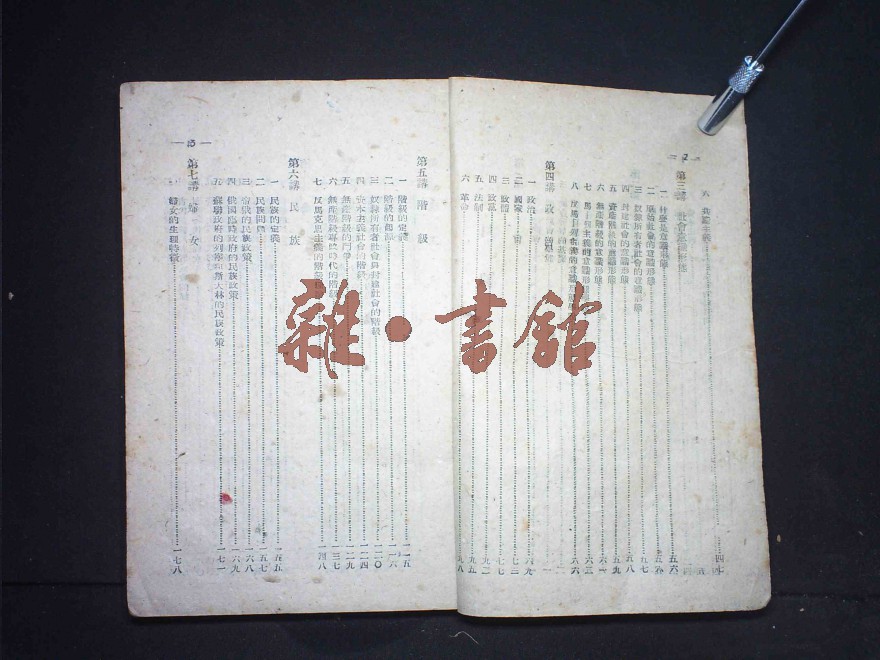 — 2 —
六 共產主義……四十
第三講 社會意識形態
一 什麼是意識形態……五六
二 原始社會的意識形態……五六
三 奴隸所有者社會的意識形態……五七
四 封建社會的意識形態……五八
五 資產階級的意識形態……五九
六 無產階級的意識形態……六一
七 馬列主義的意識形態……六三
八 ……六六
第四講 政
一 政治……六九
二 國家……七三
三 政體……七七
四 政黨……九二
五 法制……九五
六 革命……九八
第五講 階級
一 階級的定義……一一五
二 階級的起源……一一六
三 奴隸所有者社會與封建社會的階級……一二〇
四 資本主義社會的階級……一二四
五 無產階級的鬥爭……一二九
六 無產階級專政時代的階級……一三七
七 反馬克思主義的階級……一四八
第六講 民族
一 民族的定義……一五五
二 民族問題……一五七
三 帝俄的民族政策……一六八
四 俄國臨時政府的民族政策……一六九
五 蘇聯政府的列寧和斯大林的民族政策……一七一
第七講 婦女
一 婦女的生理特徵……一七八
雜·書館